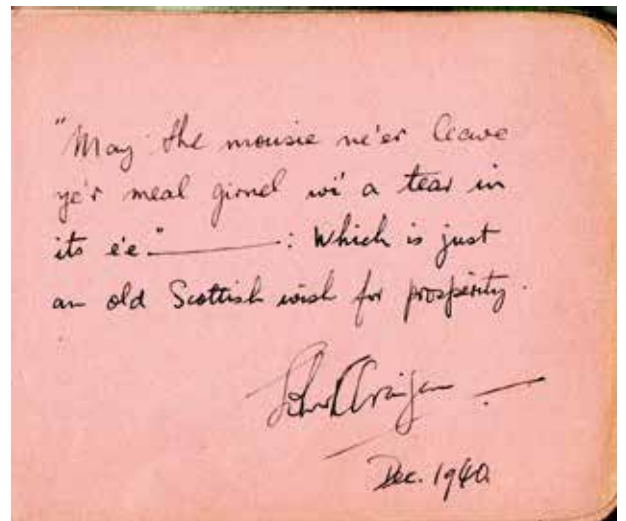 "May the mousie ne'er leave
ye'r meal girnel wi' a tear in
its e'e" ———: Which is just
an old Scottish wish for prosperity.
Dec. 1940.